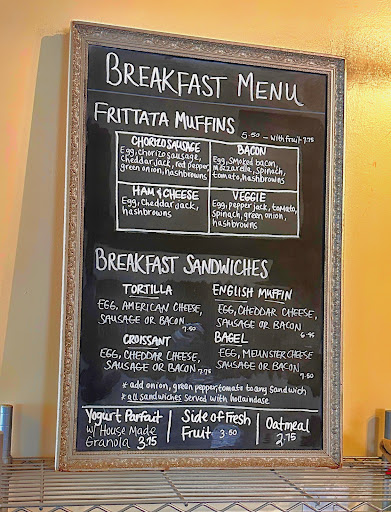 BREAKFAST MENU
FRITTATA MUFFINS
5.50 - with fruit 7.75
CHORIZO SAUSAGE
Egg, Chorizo sausage,
cheddar jack, red pepper,
green onion, hashbrowns
BACON
Egg, Smoked bacon,
mozzarella, spinach,
tomato, hashbrowns
HAM & CHEESE
Egg, Cheddar jack,
hashbrowns
VEGGIE
Egg, pepper jack, tomato,
Spinach, green onion,
hashbrowns
BREAKFAST SANDWICHES
TORTILLA
EGG, AMERICAN CHEESE,
SAUSAGE OR BACON
7.50
ENGLISH MUFFIN
EGG, CHEDDAR CHEESE,
SAUSAGE OR BACON
6.95
CROISSANT
EGG, CHEDDAR CHEESE,
SAUSAGE OR BACON 7.75
BAGEL
EGG, MEUNSTER CHEESE
SAUSAGE OR BACON
7.50
* add onion, green pepper, tomato to any sandwich
* all sandwiches served with hollaindase
Yogurt Parfait
w/ House Made
Granola 3.75
Side of Fresh
Fruit 3.50
Oatmeal
2.75